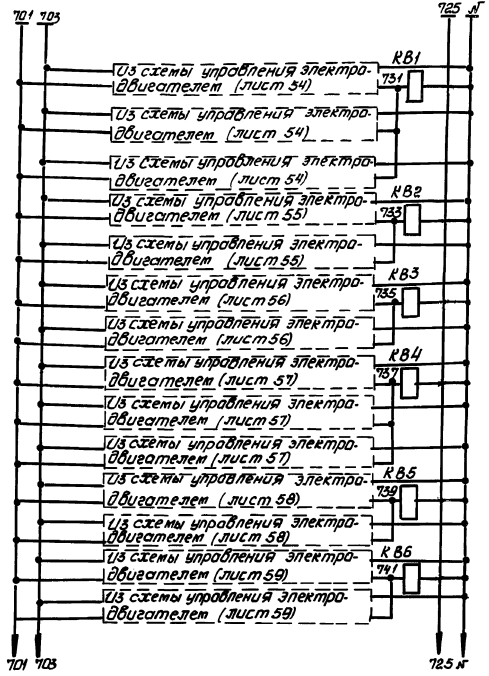 701 703 725 N
Из схемы управления электра- КВ1
двигателем (лист 54) 731
Из схемы управления электро-
двигателем (лист 54)
Из схемы управления электро-
двигателем (лист 54)
Из схемы управления электро- КВ2
двигателем (лист 55) 733
Из схемы управления электро-
двигателем (лист 55)
Из схемы управления электро- КВ3
двигателем (лист 56) 735
Из схемы управления электро-
двигателем (лист 56)
Из схемы управления электро- КВ4
двигателем (лист 57) 737
Из схемы управления электро-
двигателем (лист 57)
Из схемы управления электро-
двигателем (лист 57)
Из схемы управления электро- КВ5
двигателем (лист 58) 739
Из схемы управления электро-
двигателем (лист 58)
Из схемы управления электро- КВ6
двигателем (лист 59) 741
Из схемы управления электро-
двигателем (лист 59)
701 703 725 N